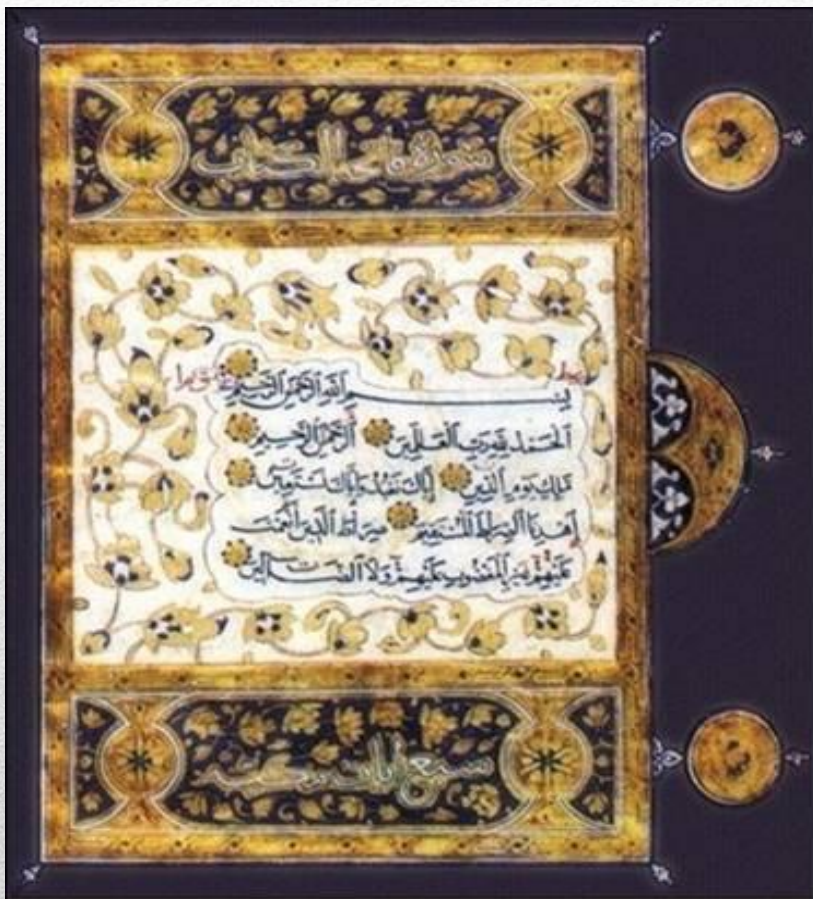 سورة فاتحة الكتاب
بِسْمِ ٱللَّهِ ٱلرَّحْمَٰنِ ٱلرَّحِيمِ
ٱلْحَمْدُ لِلَّهِ رَبِّ ٱلْعَٰلَمِينَ ٱلرَّحْمَٰنِ ٱلرَّحِيمِ
مَٰلِكِ يَوْمِ ٱلدِّينِ إِيَّاكَ نَعْبُدُ وَإِيَّاكَ نَسْتَعِينُ
ٱهْدِنَا ٱلصِّرَٰطَ ٱلْمُسْتَقِيمَ صِرَٰطَ ٱلَّذِينَ أَنْعَمْتَ
عَلَيْهِمْ غَيْرِ ٱلْمَغْضُوبِ عَلَيْهِمْ وَلَا ٱلضَّآلِّينَ
سبع آيات مكية